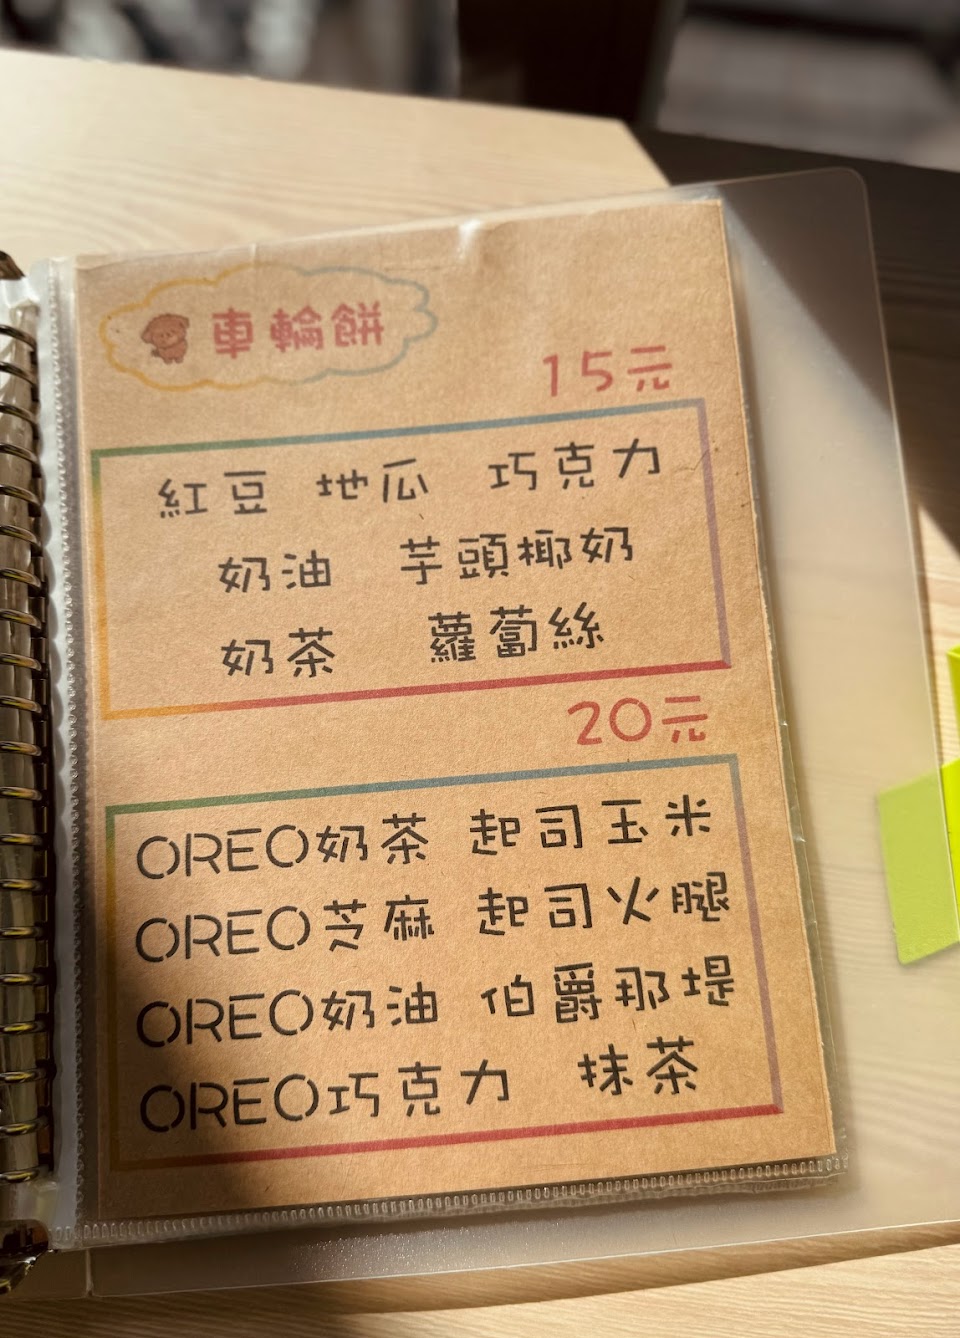 車輪餅
15元
紅豆 地瓜 巧克力
奶油 芋頭椰奶
奶茶 蘿蔔絲
20元
OREO奶茶 起司玉米
OREO芝麻 起司火腿
OREO奶油 伯爵那堤
OREO巧克力 抹茶